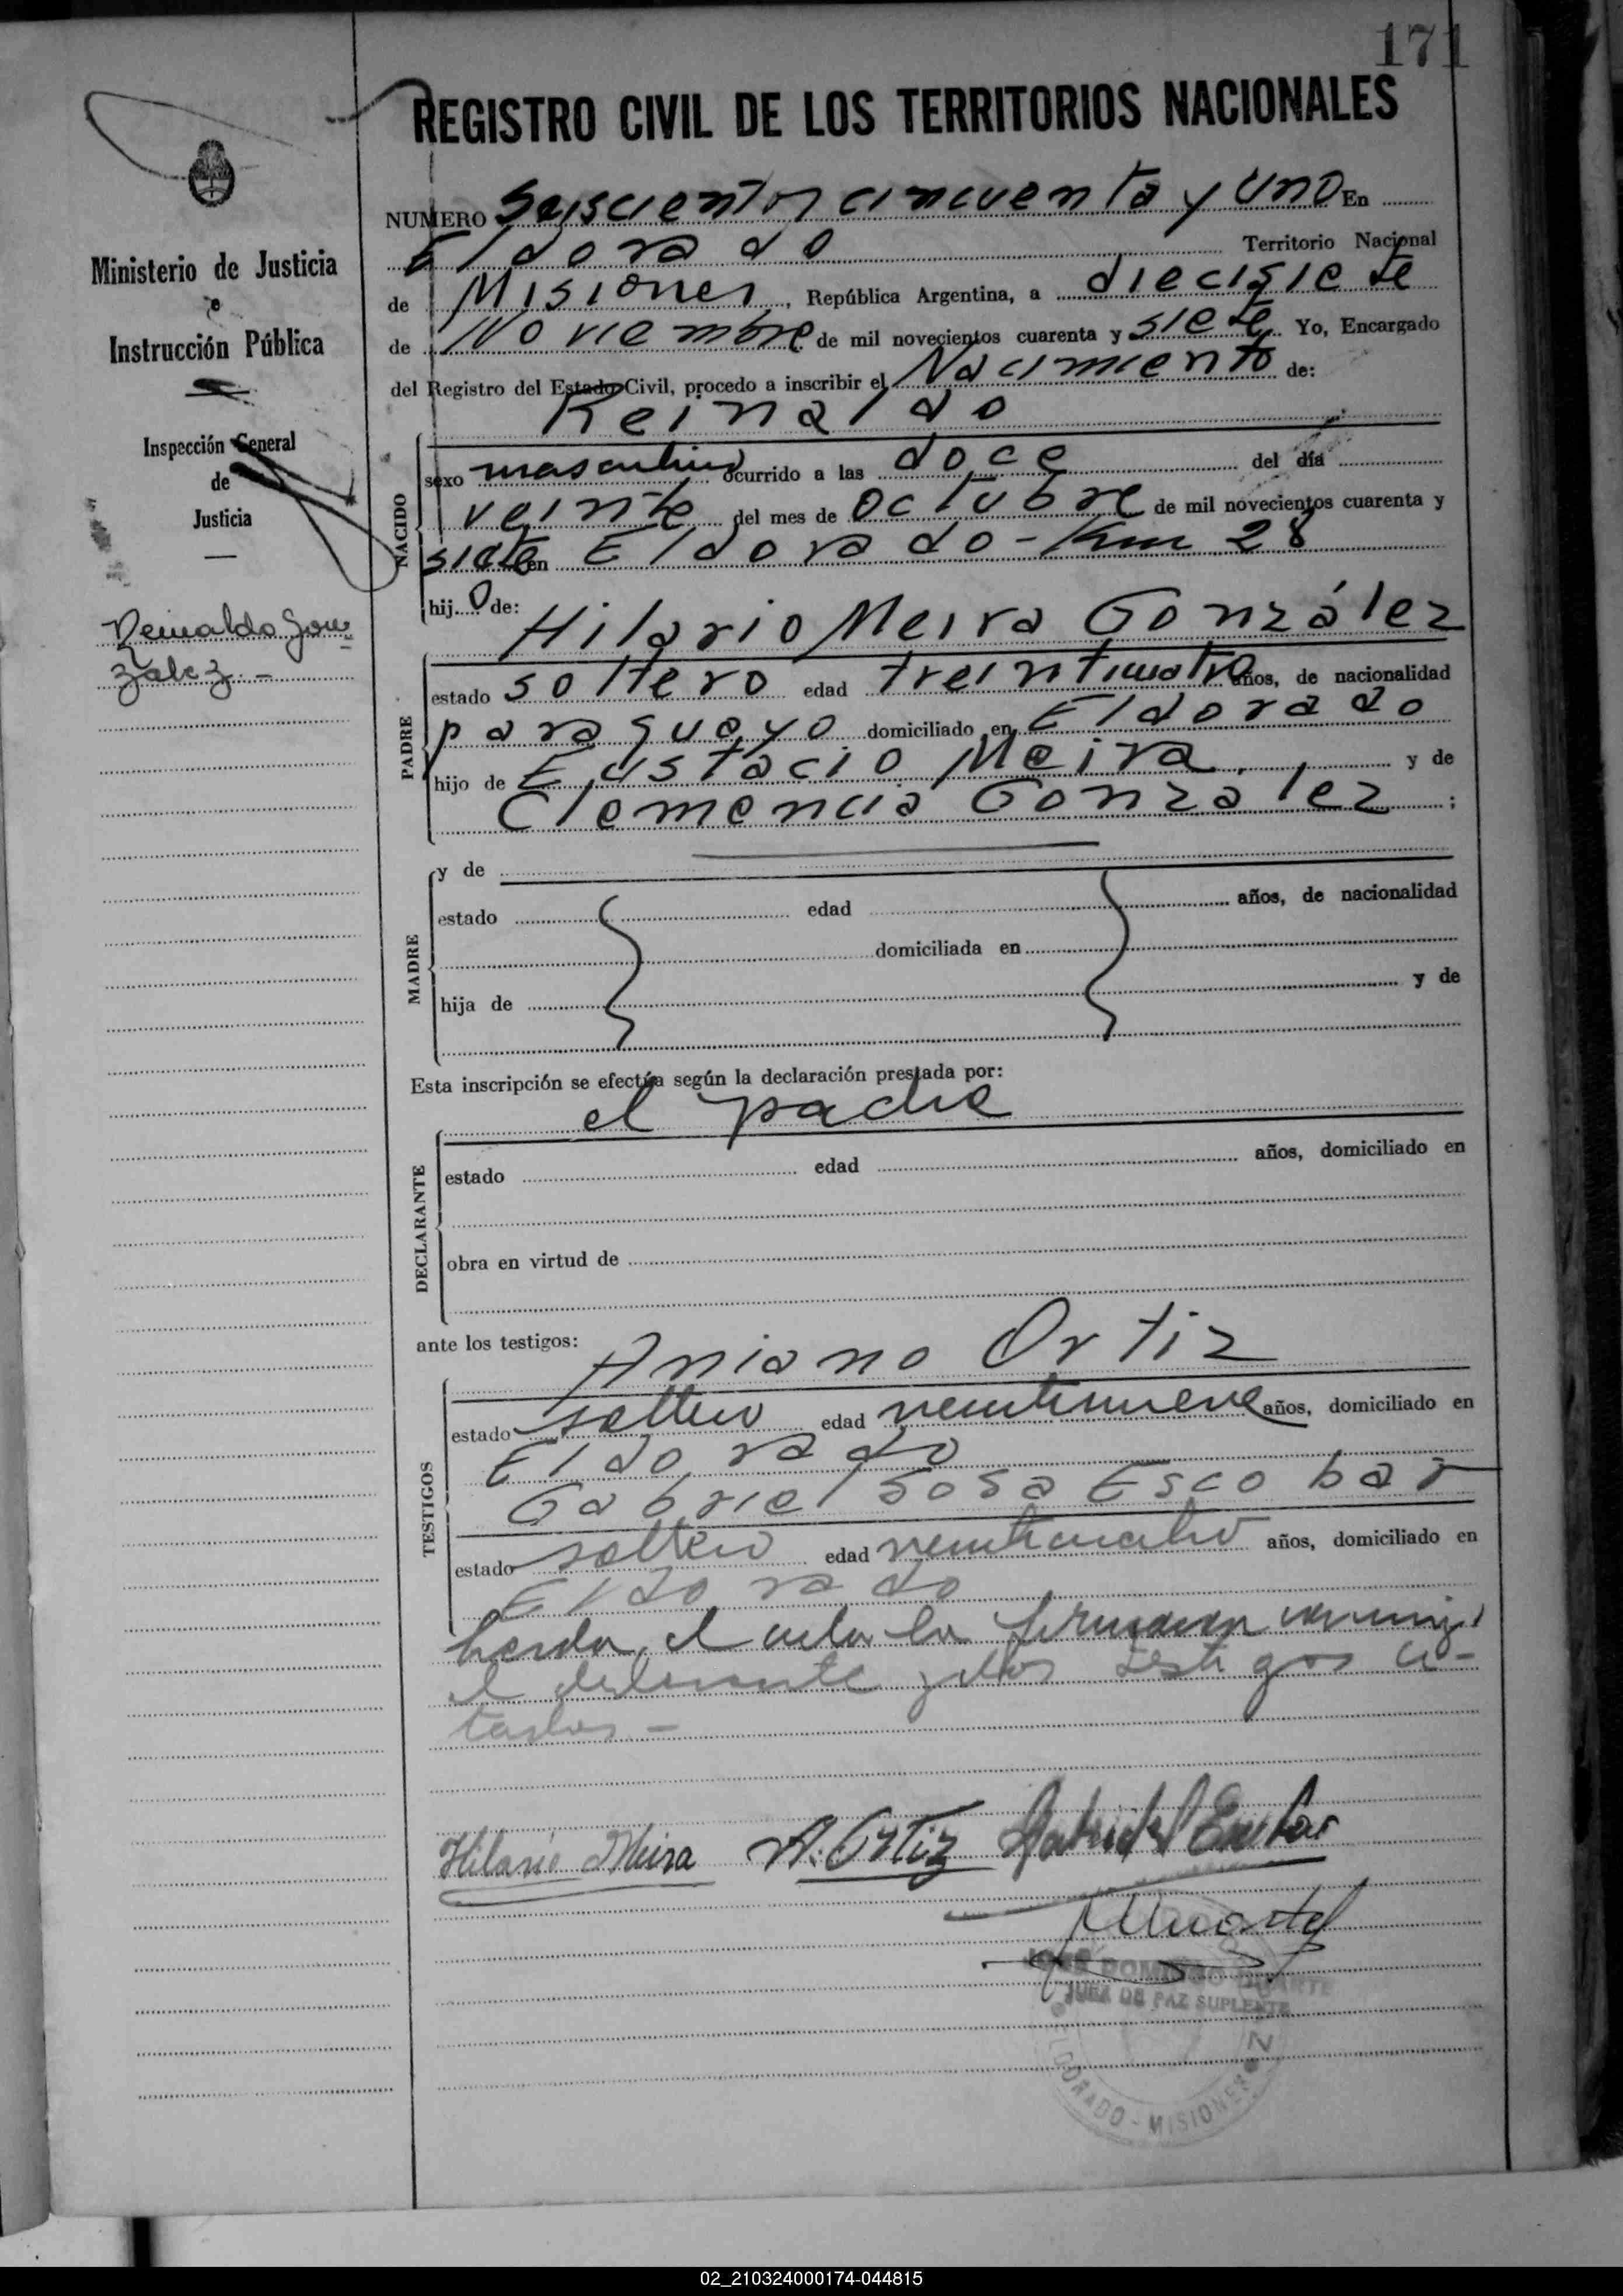 171
REGISTRO CIVIL DE LOS TERRITORIOS NACIONALES
Ministerio de Justicia
e
Instrucción Pública
Inspección General
de
Justicia
Reinaldo Gon-
zález.-
NUMERO Seiscientos cincuenta y uno En
Eldorado Territorio Nacional
de Misiones, República Argentina, a diecisiete
de Noviembre de mil novecientos cuarenta y siete Yo, Encargado
del Registro del Estado Civil, procedo a inscribir el Nacimiento de:
Reinaldo
NACIDO
sexo masculino ocurrido a las doce del día
veinte del mes de octubre de mil novecientos cuarenta y
siete en Eldorado - Km 28
hijo de: Hilario Meira González
PADRE
estado soltero edad treinticuatro años, de nacionalidad
paraguayo domiciliado en Eldorado
hijo de Eustacio Meira y de
Clemencia Gonzalez ;
MADRE
y de
estado edad años, de nacionalidad
domiciliada en
hija de y de
Esta inscripción se efectúa según la declaración prestada por:
el padre
DECLARANTE
estado edad años, domiciliado en
obra en virtud de
ante los testigos: Aniano Ortiz
TESTIGOS
estado soltero edad veintinueve años, domiciliado en
Eldorado
Gabriel Sosa Escobar
estado soltero edad veinticuatro años, domiciliado en
Eldorado
Leida el acta la firmaron conmigo
el declarante y los testigos ci-
tados.-
Hilario Meira A. Ortiz Gabriel Escobar
JOSÉ DOMINGO DUARTE
JUEZ DE PAZ SUPLENTE
ELDORADO - MISIONES
02_210324000174-044815